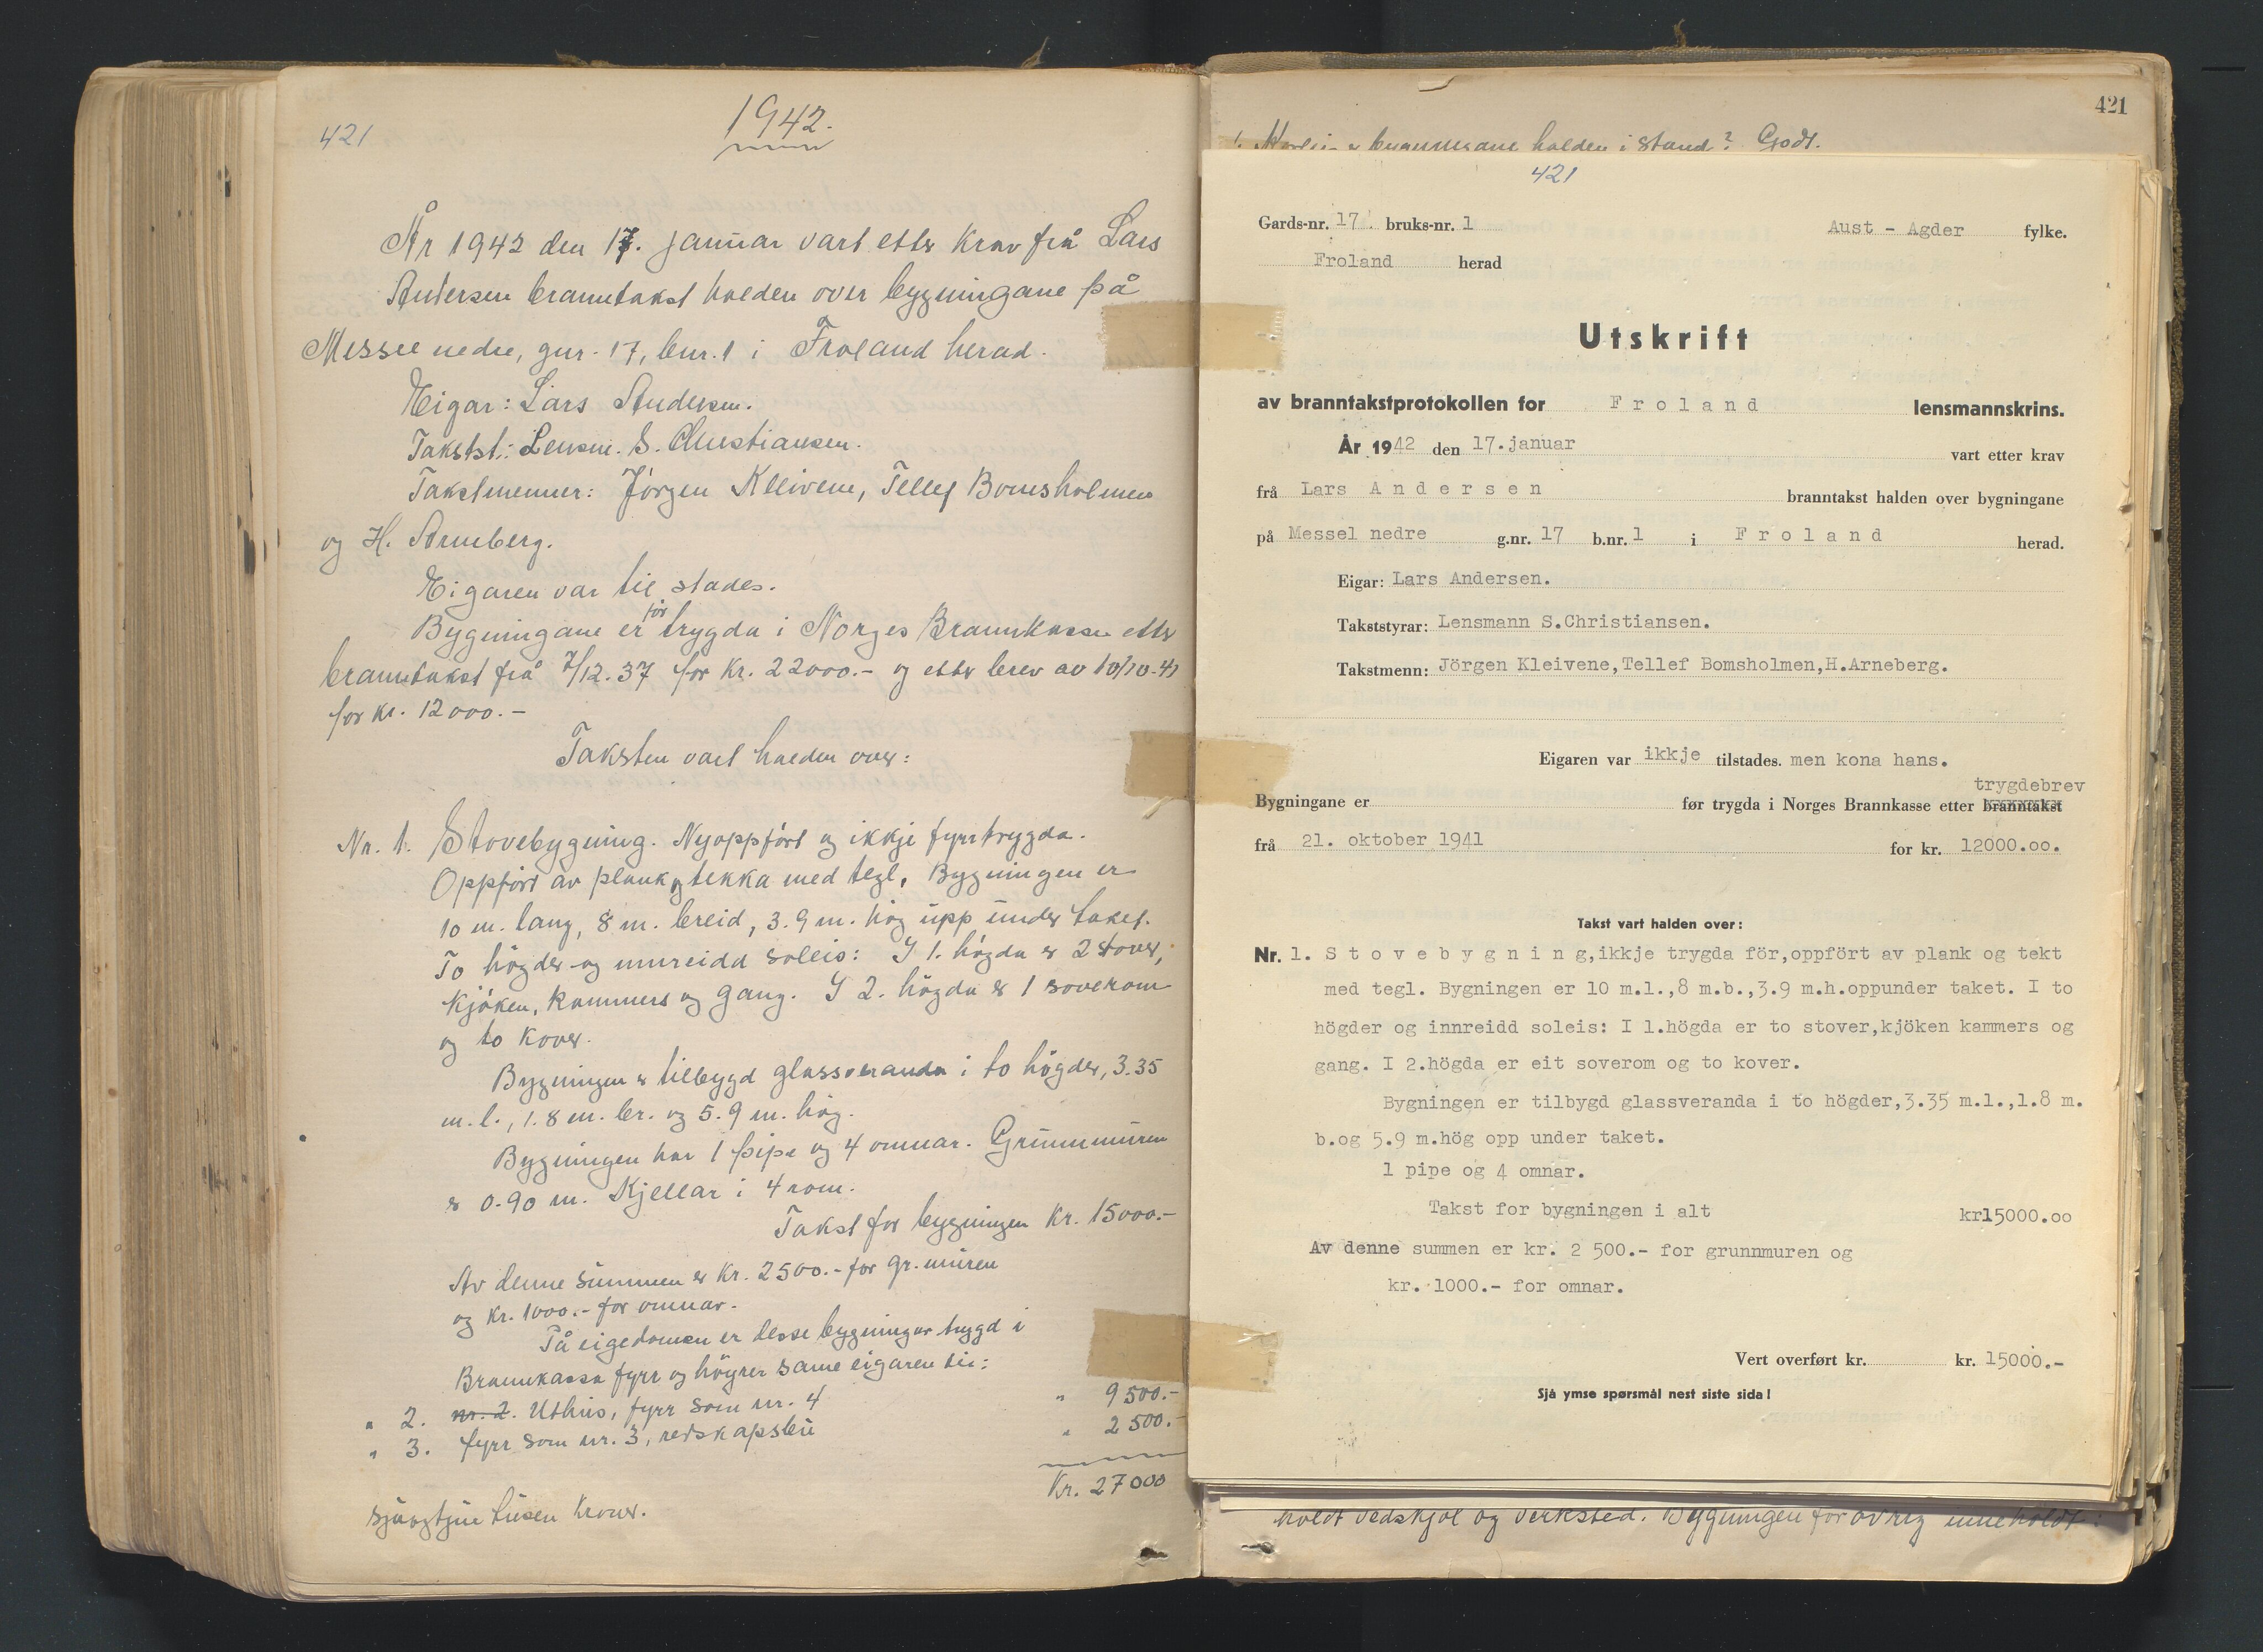 421
1942.
År 1942 den 17. januar vart etter krav frå Lars
Andersen branntakst halden over bygningane på
Messel nedre, gnr. 17, bnr. 1 i Froland herad.
Eigar: Lars Andersen.
Takstst.: Lensm. S. Christiansen.
Takstmenner: Jörgen Kleivene, Tellef Bomsholmen
og H. Arneberg.
Eigaren var til stades.
Bygningane er för trygda i Norges Brannkasse etter
branntakst frå 7/12.37 for kr. 22000.- og etter brev av 10/10-41
for kr. 12000.-
Taksten vart halden over:
Nr. 1. Stovebygning. Nyoppfört og ikkje fyrr trygda.
Oppfört av plank og tekka med tegl. Bygningen er
10 m. lang, 8 m. breid, 3.9 m. hög upp under taket.
To högder og innreidd soleis: I 1. högda er 2 stover,
kjöken, kammers og gang. I 2. högda er 1 soverom
og to kover.
Bygningen er tilbygd glassveranda i to högder, 3.35
m. l., 1.8 m. br. og 5.9 m. hög.
Bygningen har 1 pipe og 4 omnar. Grunnmuren
er 0.90 m. Kjellar i 4 rom.
Takst for bygningen kr. 15000.-
Av denne summen er kr. 2500.- for gr.muren
og kr. 1000.- for omnar.
På eigedomen er desse bygningar trygd i
Brannkassa fyrr og höyrer same eigaren til:
" 2. nr. 2. Uthus, fyrr som nr. 4 " 9500.-
" 3. fyrr som nr. 3, redskapsbu " 2500.-
Kr. 27000
sjuogtjue tusen kroner.
421
bygningane halden i stand? Godt.
421
Gards-nr. 17. bruks-nr. 1 Aust - Agder fylke.
Froland herad
Utskrift
av branntakstprotokollen for Froland lensmannskrins.
År 1942 den 17.januar vart etter krav
frå Lars Andersen branntakst halden over bygningane
på Messel nedre g.nr. 17 b.nr. 1 i Froland herad.
Eigar: Lars Andersen.
Takststyrar: Lensmann S.Christiansen.
Takstmenn: Jörgen Kleivene,Tellef Bomsholmen,H.Arneberg.
Eigaren var ikkje tilstades. men kona hans.
trygdebrev
Bygningane er før trygda i Norges Brannkasse etter branntakst
frå 21. oktober 1941 for kr. 12000.oo.
Takst vart halden over:
Nr. 1. Stovebygning,ikkje trygda för,oppfört av plank og tekt
med tegl. Bygningen er 10 m.l.,8 m.b.,3.9 m.h.oppunder taket. I to
högder og innreidd soleis: I 1.högda er to stover,kjöken kammers og
gang. I 2.högda er eit soverom og to kover.
Bygningen er tilbygd glassveranda i to högder,3.35 m.l.,1.8 m.
b.og 5.9 m.hög opp under taket.
1 pipe og 4 omnar.
Takst for bygningen i alt kr15000.oo
Av denne summen er kr. 2 500.- for grunnmuren og
kr. 1000.- for omnar.
Vert overført kr. kr. 15000.-
Sjå ymse spørsmål nest siste sida!
holdt vedskjol og verksted. Bygningen for øvrig inneholdt: